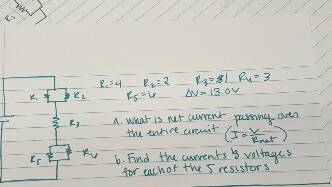 R₁=4 R₂=2 R₃=8 R₄=3
R₅=6 ΔV=13.0V
R₁ R₂
a. what is net current passing over
the entire circuit (I = V / Rnet)
R₃
b. Find the currents & voltages
for each of the 5 resistors
R₅ R₄